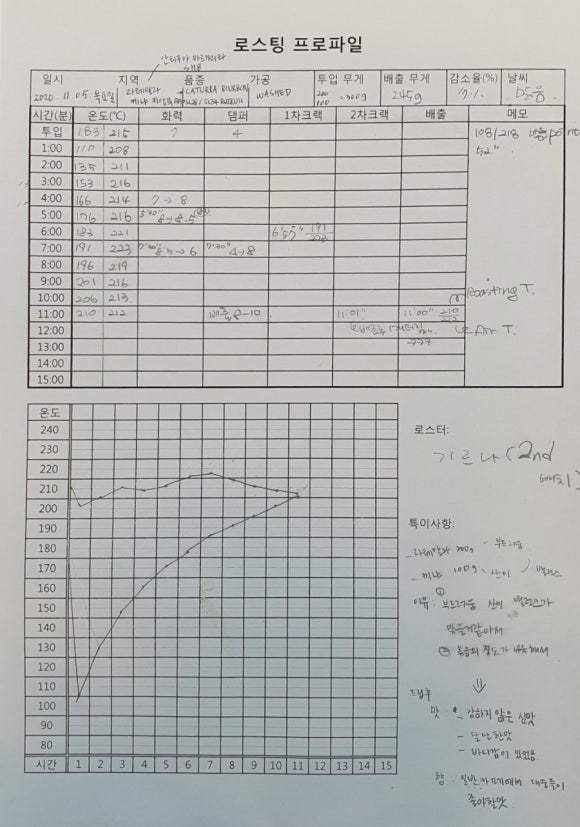 로스팅 프로파일
안티구아
SHB
일시 지역 품종 가공 투입 무게 배출 무게 감소율(%) 날씨
2020.11.05.목요일 과테말라 CATURRA BOURBON WASHED 200 100 =300g 245g 맑음
케냐
시간(분) 온도(℃) 화력 댐퍼 1차크랙 2차크랙 배출 메모
투입 183 215 7 4 108/218 point
1:00 110 208 52"
2:00 135 211
3:00 153 216
4:00 166 214 7→8
5:00 176 216 8→8.5
6:00 183 221 6'57" 191
7:00 191 223 8.5→6 4→8
8:00 196 219
9:00 201 216
10:00 206 213 Roasting T.
11:00 210 212 배출 8-10 11'01" 11'00" 210 212
12:00 Air T.
13:00
14:00
15:00
온도
240
230
220
210
200
190
180
170
160
150
140
130
120
110
100
90
80
시간 1 2 3 4 5 6 7 8 9 10 11 12 13 14 15
로스터:
(2nd
특이사항:
과테말라 200g - 부드러움
케냐 100g - 산미 밸런스
이유: ① 부드러움 산미 밸런스가
맞을거같아서
② 볶음의 정도가 비슷해서
⇓
드립후
맛: - 강하지 않은 신맛
- 달달한맛
- 바디감이 있었음
향: 일반 카페에서 대중들이
좋아할맛